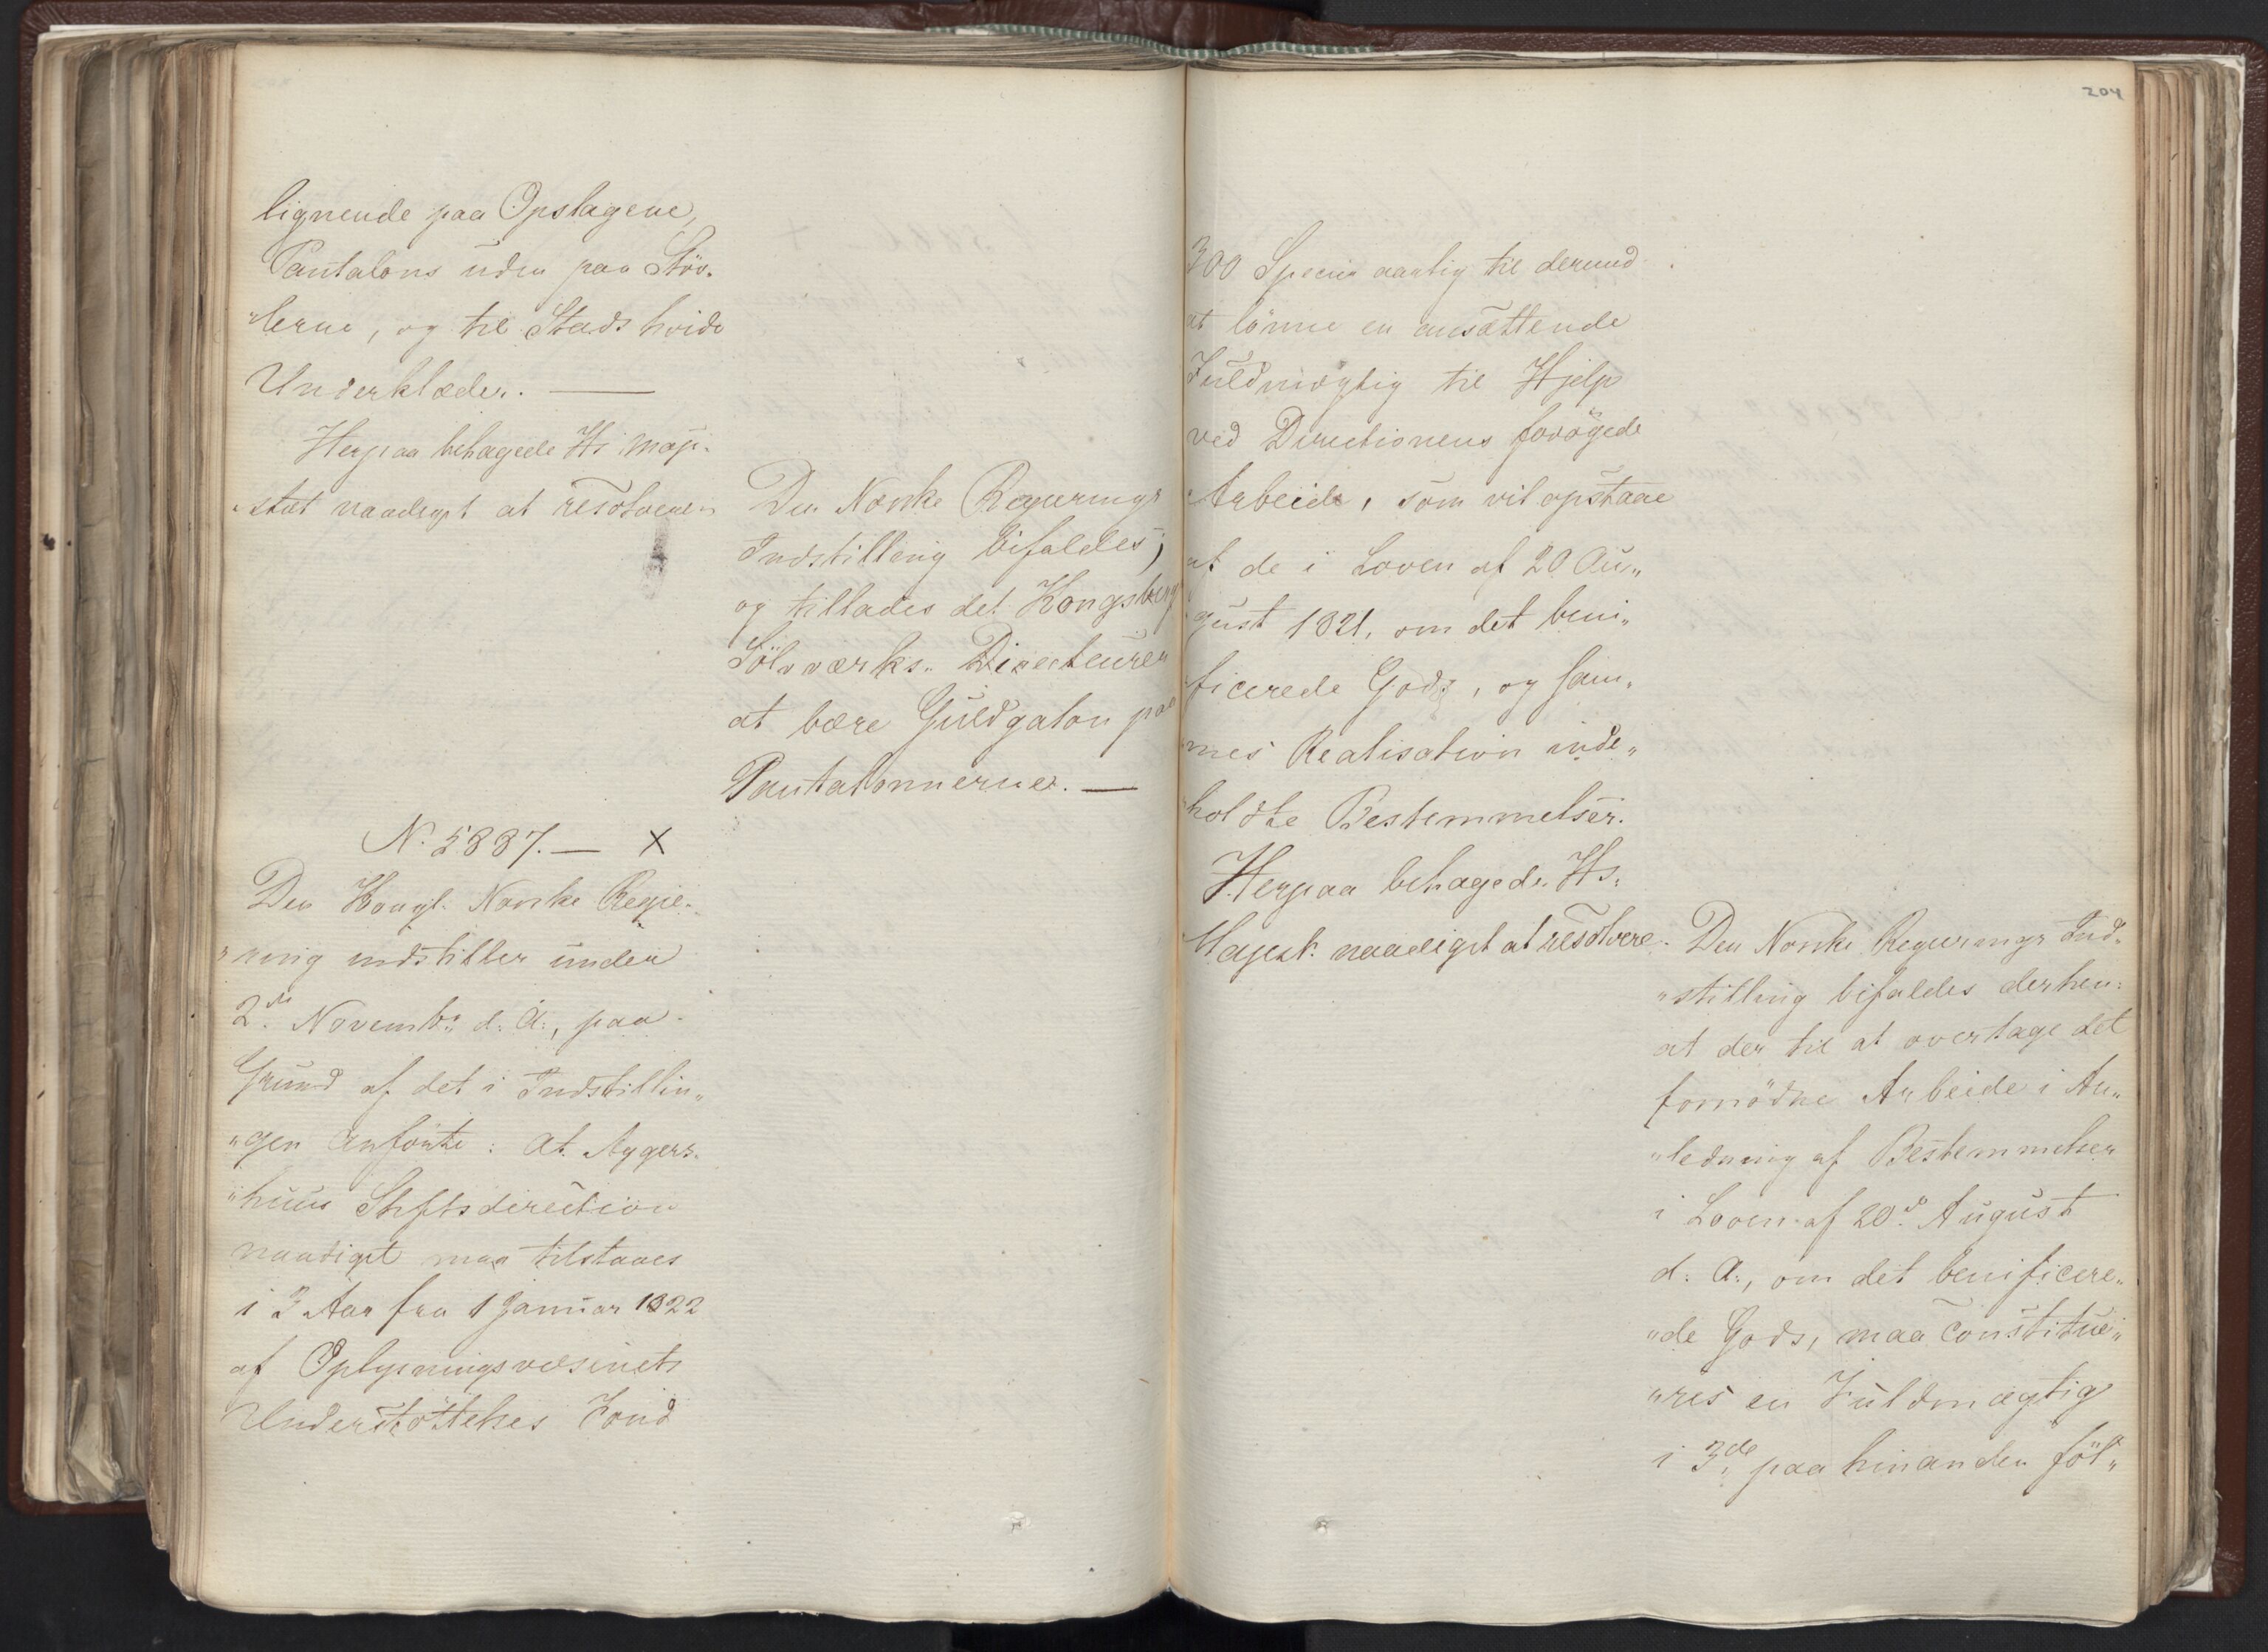 lignende paa Opslagene,
Pantalons uden paa Stöv-
"lerne, og til Stads hvide
Underklæder. —
Herpaa behagede Hs Maje-
"stæt naadigst at resolvere:
Den Norske Regjerings
Indstilling bifaldes;
og tillades det Kongsberg
Sölvværks. Directeuren
at bære Guldgalon paa
Pantalonnerne. —
N. 5887. — X
Den Kongl. Norske Regje-
"ring indstiller under
2de Novembr d: A:, paa
Grund af det i Indstillin„
"gen Anförte: At Aggers-
"huus Stiftsdirection
naadigst maa tilstaaes
i 3 Aar fra 1 Januar 1822
af Oplysningsvæsenets
Understöttelses Fond
204
300 Specier aarlig til dermed
at lönne en ansættende
Fuldmægtig til Hjelp
ved Directionens forögede
Arbeide, som vil opstaae
af de i Loven af 20 Au„
"gust 1821, om det beni„
"ficerede Gods, og sam„
"mes Realisation inde„
"holdte Bestemmelser.
Herpaa behagede Hs.
Majest: naadigst at resolvere:
Den Norske Regjerings Ind„
"stilling bifaldes derhen:
at der til at overtage det
fornödne Arbeide i An„
"ledning af Bestemmelser
i Loven af 20de August
d: A:, om det benificere„
"de Gods, maa constitue„
"res en Fuldmægtig
i 3de paa hinanden föl„